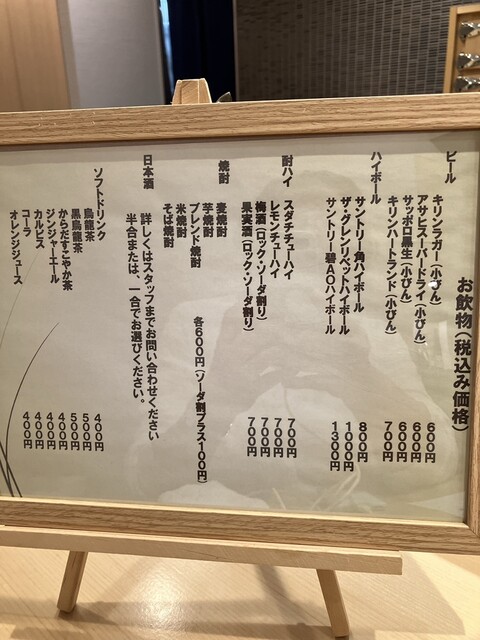 お飲物(税込み価格)
ビール
キリンラガー(小びん) 600円
アサヒスーパードライ(小びん) 600円
サッポロ黒生(小びん) 600円
キリンハートランド(小びん) 700円
ハイボール
サントリー角ハイボール 800円
ザ・グレンリベットハイボール 1000円
サントリー碧AOハイボール 1300円
酎ハイ
スダチチューハイ 700円
レモンチューハイ 700円
梅酒(ロック・ソーダ割り) 700円
果実酒(ロック・ソーダ割り) 700円
焼酎
麦焼酎
芋焼酎
ブレンド焼酎 各600円(ソーダ割プラス100円)
米焼酎
そば焼酎
日本酒
詳しくはスタッフまでお問い合わせください
半合または、一合でお選びください。
ソフトドリンク
烏龍茶 400円
黒烏龍茶 500円
からだすこやか茶 500円
ジンジャーエール 400円
カルピス 400円
コーラ 400円
オレンジジュース 400円